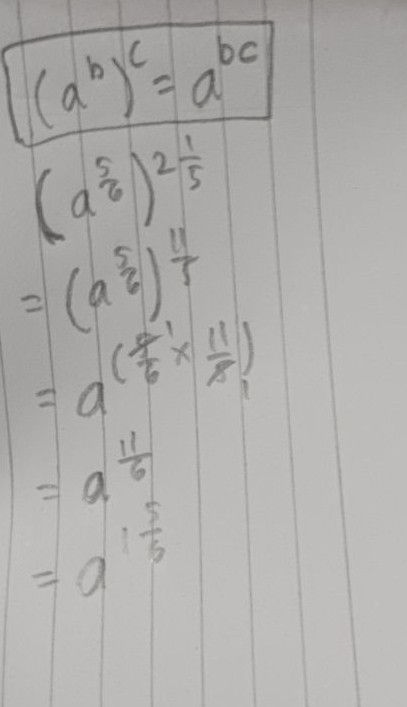 (a^b)^c = a^{bc}
(a^{5/6})^{2 1/5}
= (a^{5/6})^{11/5}
= a^{(5/6 ^1 × 11/5 _1)}
= a^{11/6}
= a^{1 5/6}